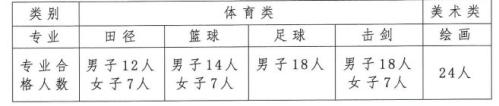 类别 体育类 美术类
专业 田径 篮球 足球 击剑 绘画
专业合格人数 男子12人 女子7人 男子14人 女子7人 男子18人 男子18人 女子7人 24人